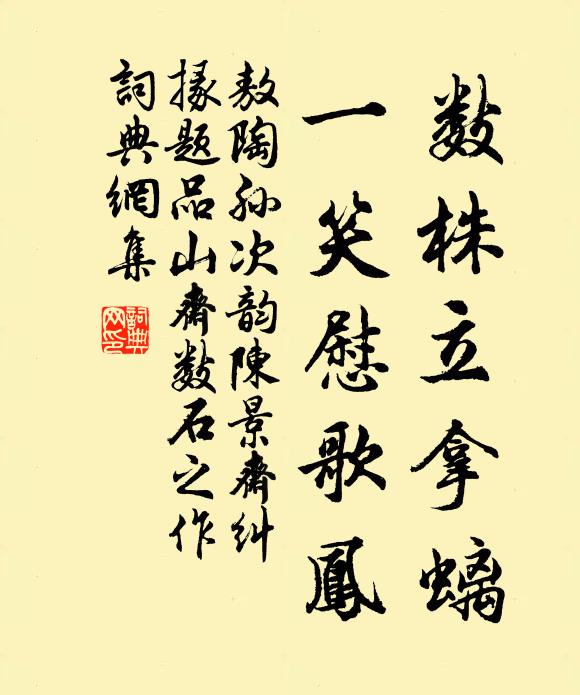 數株立拿螭
一笑慰歌鳳
敖陶孫次韵陳景齋糾
掾題品山齋數石之作
詞典網集
詞典
网印